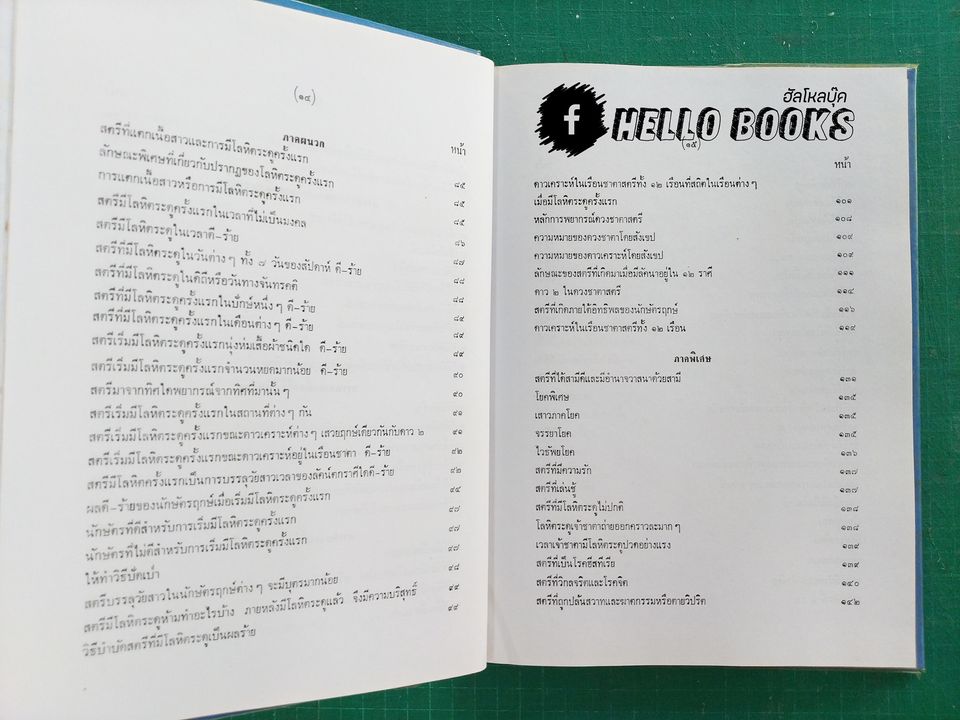 (๑๔)
ภาคผนวก
หน้า
สตรีที่แตกเนื้อสาวและการมีโลหิตระดูครั้งแรก
ลักษณะพิเศษที่เกี่ยวกับปรากฏของโลหิตระดูครั้งแรก ๘๕
การแตกเนื้อสาวหรือการมีโลหิตระดูครั้งแรก ๘๕
สตรีมีโลหิตระดูครั้งแรกในเวลาที่ไม่เป็นมงคล ๘๕
สตรีมีโลหิตระดูในเวลาดี-ร้าย ๘๖
สตรีที่มีโลหิตระดูในวันต่างๆ ทั้ง ๗ วันของสัปดาห์ ดี-ร้าย ๘๗
สตรีที่มีโลหิตระดูในดิถีหรือวันทางจันทรคติ ๘๘
สตรีที่มีโลหิตระดูครั้งแรกในปักษ์หนึ่งๆ ดี-ร้าย ๘๘
สตรีที่มีโลหิตระดูครั้งแรกในเดือนต่างๆ ดี-ร้าย ๘๙
สตรีเริ่มมีโลหิตระดูครั้งแรกนุ่งห่มเสื้อผ้าชนิดใด ดี-ร้าย ๘๙
สตรีเริ่มมีโลหิตระดูครั้งแรกจำนวนหยดมากน้อย ดี-ร้าย ๙๐
สตรีมาจากทิศใดพยากรณ์จากทิศที่มานั้นๆ ๙๐
สตรีเริ่มมีโลหิตระดูครั้งแรกในสถานที่ต่างๆ กัน ๙๑
สตรีเริ่มมีโลหิตระดูครั้งแรกขณะดาวเคราะห์ต่างๆ เสวยฤกษ์เดียวกันกับดาว ๒ ๙๑
สตรีเริ่มมีโลหิตระดูครั้งแรกขณะดาวเคราะห์อยู่ในเรือนชาตา ดี-ร้าย ๙๒
สตรีมีโลหิตครั้งแรกเป็นการบรรลุวัยสาวเวลาของลัคน์ตกราศีใดดี-ร้าย ๙๒
ผลดี-ร้ายของนักษัตรฤกษ์เมื่อเริ่มมีโลหิตระดูครั้งแรก ๙๔
นักษัตรที่ดีสำหรับการเริ่มมีโลหิตระดูครั้งแรก ๙๗
นักษัตรที่ไม่ดีสำหรับการเริ่มมีโลหิตระดูครั้งแรก ๙๗
ให้ทำวิธีปัดเป่า ๙๘
สตรีบรรลุวัยสาวในนักษัตรฤกษ์ต่างๆ จะมีบุตรมากน้อย ๙๘
สตรีมีโลหิตระดูห้ามทำอะไรบ้าง ภายหลังมีโลหิตระดูแล้ว จึงมีความบริสุทธิ์ ๙๙
วิธีบำบัดสตรีที่มีโลหิตระดูเป็นผลร้าย ๙๙
ฮัลโหลบุ๊ค
f HELLO BOOKS
(๑๕)
หน้า
ดาวเคราะห์ในเรือนชาตาสตรีทั้ง ๑๒ เรือนที่สถิตในเรือนต่างๆ
เมื่อมีโลหิตระดูครั้งแรก ๑๐๑
หลักการพยากรณ์ดวงชาตาสตรี ๑๐๘
ความหมายของดวงชาตาโดยสังเขป ๑๐๙
ความหมายของดาวเคราะห์โดยสังเขป ๑๐๙
ลักษณะของสตรีที่เกิดมาเมื่อมีลัคนาอยู่ใน ๑๒ ราศี ๑๑๑
ดาว ๒ ในดวงชาตาสตรี ๑๑๔
สตรีที่เกิดภายใต้อิทธิพลของนักษัตรฤกษ์ ๑๑๖
ดาวเคราะห์ในเรือนชาตาสตรีทั้ง ๑๒ เรือน ๑๑๙
ภาคพิเศษ
สตรีที่ได้สามีดีและมีอำนาจวาสนาด้วยสามี ๑๓๑
โยคพิเศษ ๑๓๕
เสาวภาคโยค ๑๓๕
จรรยาโยค ๑๓๕
ไวธัพยโยค ๑๓๖
สตรีที่มีความรัก ๑๓๗
สตรีที่เล่นชู้ ๑๓๗
สตรีที่มีโลหิตระดูไม่ปกติ ๑๓๘
โลหิตระดูเจ้าชาตาถ่ายออกคราวละมากๆ ๑๓๘
เวลาเจ้าชาตามีโลหิตระดูปวดอย่างแรง ๑๓๙
สตรีที่เป็นโรคฮีสทีเรีย ๑๓๙
สตรีที่วิกลจริตและโรคจิต ๑๔๐
สตรีที่ถูกปล้นสวาทและฆาตกรรมหรือตายวิปริต ๑๔๒